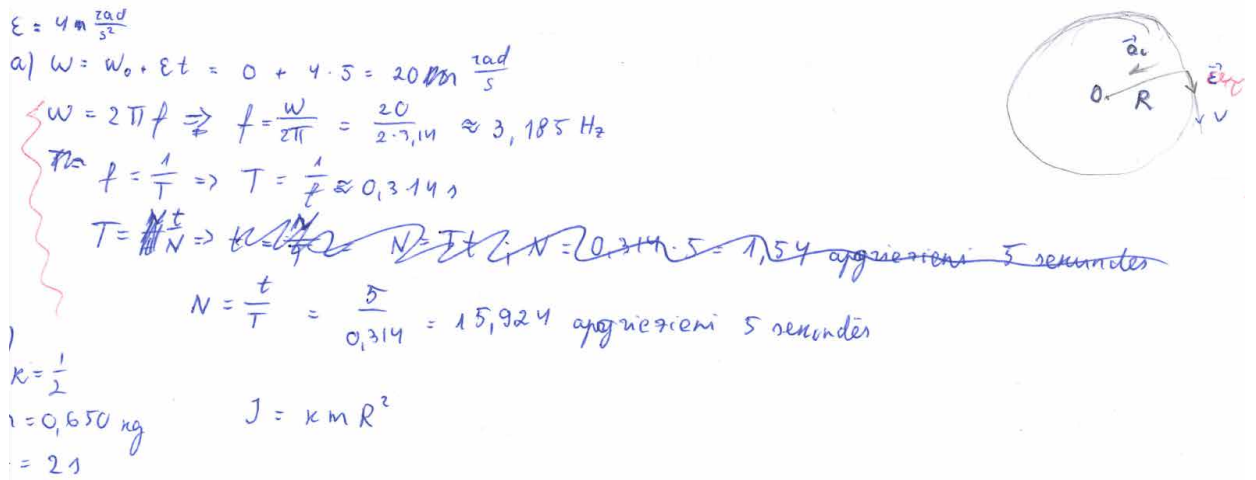 ε = 4 rad/s²
a) ω = ω₀ + εt = 0 + 4·5 = 20 rad/s
ω = 2πf => f = ω/2π = 20/2·3,14 ≈ 3,185 Hz
f = 1/T => T = 1/f ≈ 0,314 s
T = t/N => N = Tt ; N = 0,314·5 = 1,57 apgriezieni 5 sekundēs
N = t/T = 5/0,314 = 15,924 apgriezieni 5 sekundēs
k = 1/2
= 0,650 kg J = kmR²
= 2s
O R
v